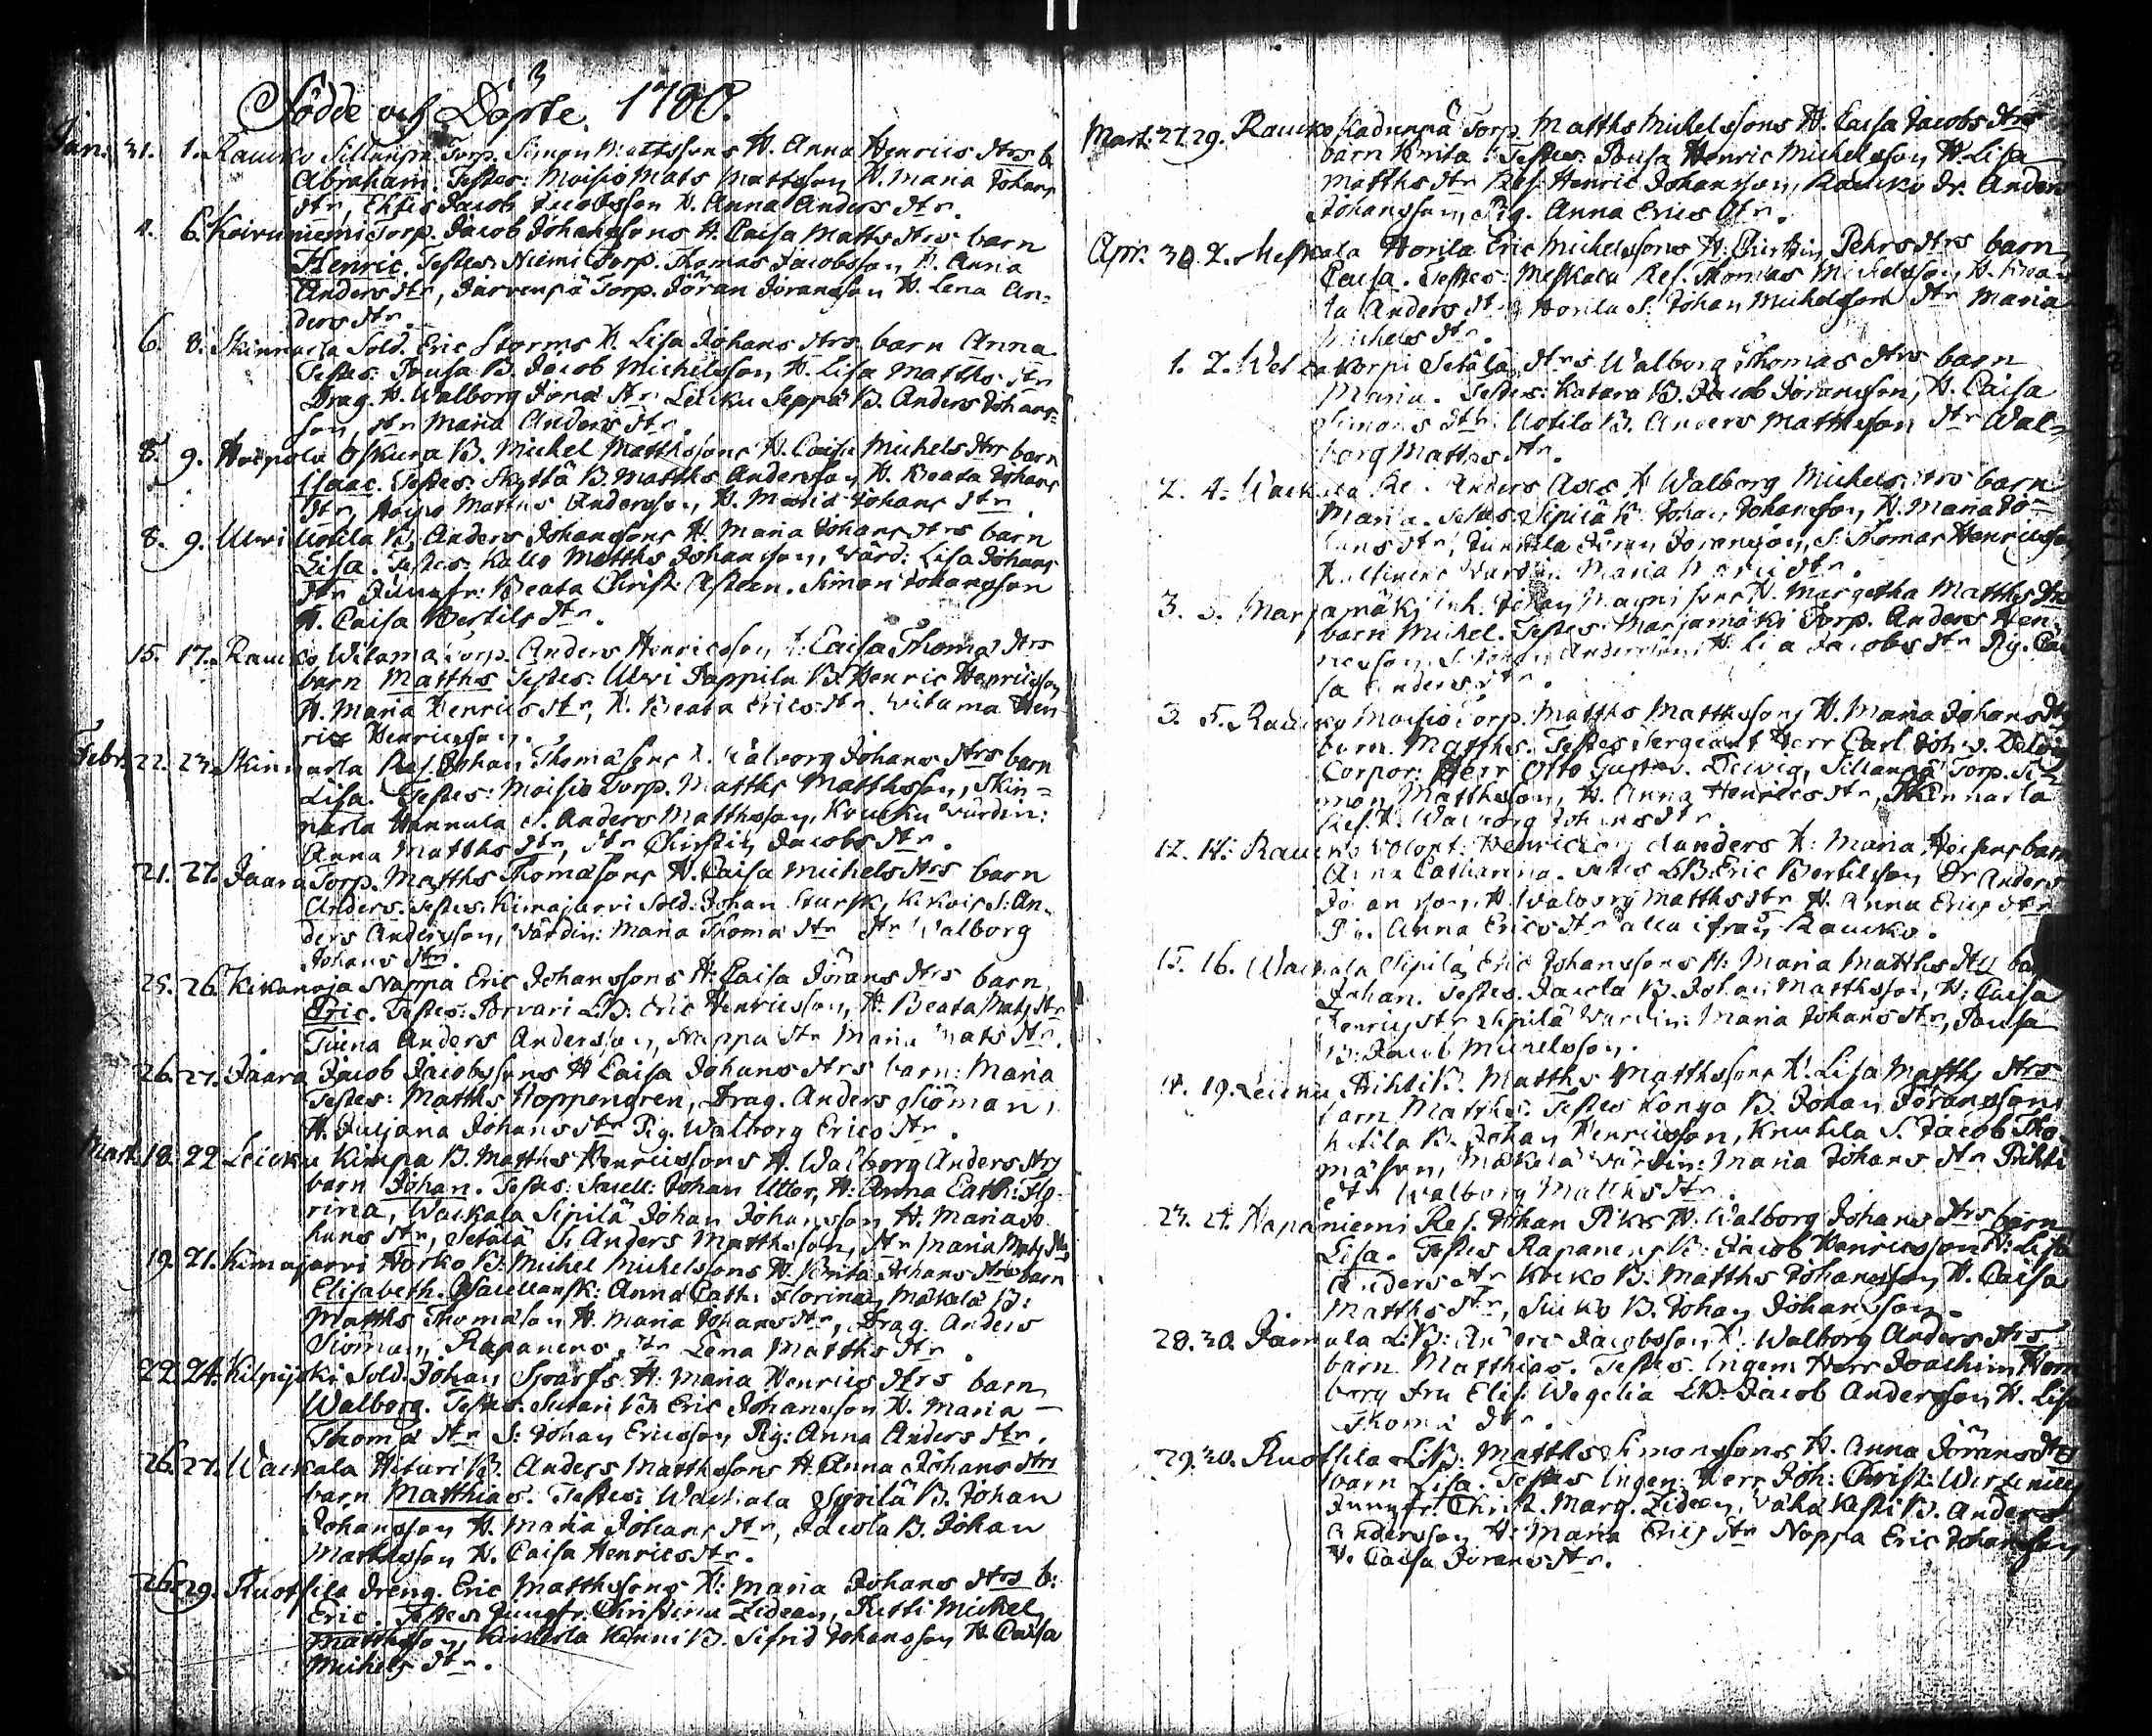 Födde och Döpte. 1780.
Jan. 31. 1. Raucko Sillanpä Torp. Simon Mattssons H. Anna Henrics dtrs b
Abraham. Testes: Moisio Mats Mattsson H. Maria Johans
dtr, Jacob Jacobsson H. Anna Anders dtr.
4. 6. Koiruniemi Torp. Jacob Johanssons H. Caisa Matts dtrs barn
Henric. Testes: Niemi Torp. Thomas Jacobsson H. Anna
Anders dtr, Järvenpä Torp. Jöran Jöransson H. Lena An-
ders dtr.
6. 8. Skinnarla Sold. Eric Storms H. Lisa Johans dtrs barn Anna
Testes: Pousa B. Jacob Michelsson, H. Lisa Matths dtr
Drag. H. Walborg Jöns dtr Leicku Seppä B. Anders Johans-
son, dtr Maria Anders dtr.
8. 9. Hoipola B. Michel Matthssons H. Caisa Michels dtrs barn
Isaac. Testes: Skyttä B. Matths Andersson H. Beata Johans
dtr, Matths Andersson, H. Maria Johans dtr
8. 9. Ulvi Uotila B. Anders Johanssons H. Maria Johans dtrs barn
Lisa. Testes: Kallo Matths Johansson, Värd: Lisa Johans
dtr Jungfr: Beata Christ: Asteen. Simon Johansson
H. Caisa Bertils dtr.
15. 17. Raucko Witama Torp. Anders Henricsson H: Caisa Thomæ dtrs
barn Matths Testes: Ulvi Pappila B. Henric Henricsson
H. Maria Henrics dtr, H. Beata Erics dtr. Witama Hen
ric Henricsson.
Febr. 22. 23. Skinnarla Ref. Johan Thomæsons H. Walborg Johans dtrs barn
Lisa. Testes: Moisio Torp. Matths Matthsson, Skin-
narla Hannula S. Anders Matthsson, Koucku värdin:
Anna Matths dtr, dtr Christin Jacobs dtr.
21. 27. Jaara Torp. Matths Thomæsons H. Caisa Michels dtrs barn
Anders. Testes: Kimajarvi Sold. Johan Stursk, S: An-
ders Andersson, Värdin: Maria Thomæ dtr dtr Walborg
Johans dtr.
25. 26. Kikanoja Nappa Eric Johanssons H: Caisa Jörans dtrs barn
Eric. Testes: Porvari LB: Eric Henricsson, H. Beata Mats dtr
Tiina Anders Andersson, Nappa dtr Maria Mats dtr.
26. 27. Jaara Jacob Jacobssons H Caisa Johans dtrs barn: Maria
Testes: Matths Hoppengren, Drag. Anders Siöman,
H. Juliana Johans dtr Pig. Walborg Erics dtr.
Mart. 18. 22 Leicku Kimpa B. Matths Henricssons H. Walborg Anders dtrs
barn Johan. Testes: Johan Utter, H: Anna Cath: Flo-
rina, Wackala Sipilä Johan Johansson H. Maria Jo
hans dtr, Setälä S. Anders Matthsson, dtr Maria Mats dtr
19. 21. Kimajarvi Horko B. Michel Michelssons H. Brita Johans dtrs barn
Elisabeth. Anna Cath: Florina, Mäkelä B:
Matths Thomæson H. Maria Johans dtr, Drag. Anders
Siöman, Rapanens dtr Lena Matths dtr.
22. 24. Kilpijoki Sold. Johan Sparfs H: Maria Henrics dtrs barn
Walborg. Testes: Sutari B. Eric Johansson H. Maria
Thomæ dtr S: Johan Ericsson Pig: Anna Anders dtr.
26. 27. Wackala Hituri B. Anders Matthssons H. Anna Johans dtrs
barn Matthias. Testes: Wackala Sipilä B. Johan
Johansson H. Maria Johans dtr, Jacola B. Johan
Matthsson H. Caisa Henrics dtr.
26. 29. Ruotsila Dreng. Eric Matthssons H: Maria Johans dtrs b:
Eric. Testes: Jungfr. Christina Zidean, Michel
Matthsson, B. Sifrid Johansson H. Caisa
Michels dtr.
Mart: 27. 29. Raucko Torp. Matths Michelssons H. Caisa Jacobs dtrs
barn Brita. Testes: Pousa Henric Michelsson H. Lisa
Matths dtr Ref. Henric Johansson, Raucko Dr. Anders
Johansson, Pig. Anna Erics dtr.
Apr. 30. 2. Meskala Horila Eric Michelssons H: Christin Pehrs dtrs barn
Caisa. Testes: Meskala Ref. Thomas Michelsson, H.
Anders dtr, Horila S. Johan Michelsson dtr Maria
Michels dtr.
1. 2. Setälä dtrs Walborg Thomas dtrs barn
Maria. Testes: Katara B. Jacob Jöransson, H. Caisa
Simons dtr. Uotila B. Anders Matthsson dtr Wal-
borg Matths dtr.
2. 4. Wackala Anders H Walborg Michels dtrs barn
Maria. Testes: Sipilä B. Johan Johansson, H. Maria Jo-
hans dtr, Junnila Jöran Jöransson, S: Thomas Henricsson
Värdin. Maria dtr.
3. 5. Marjamäki Inh. Johan H. Margetha Matths dtr
barn Michel. Testes: Marjamäki Torp. Anders Hen-
ricsson, S. Johan Andersson, H. Lisa Jacobs dtr Pig. Cai
sa Anders dtr.
3. 5. Raucko Moisio Torp. Matths Matthsson H. Maria Johans dtr
barn. Matths. Testes Sergeant Herr Carl Joh:
Corpor: Herr Otto Gustav. Delvig, Sillanpä Torp. Si-
mon Matthsson, H. Anna Henrics dtr, Skinnarla
Ref. H. Walborg Johans dtr.
12. 14: Raucko Volont: H: Maria barn
Anna Catharina. Testes LB: Eric Bertilsson Dr Anders
Johansson, H. Walborg Matths dtr H. Anna Erics dtr
Pi. Anna Erics dtr alla ifrån Raucko.
15. 16. Wackala Sipilä Eric Johanssons H: Maria Matths dtrs barn
Johan. Testes. Jacola B. Johan Matthsson, H: Caisa
Henrics dtr Sipilä Värdin: Maria Johans dtr, Pousa
B: Jacob Michelsson.
17. 19. Leicku Prihti B. Matths Matthssons H: Lisa Matths dtrs
barn Matths. Testes Konga B. Johan Jöransson
B. Johan Henricsson, Knutila S. Jacob Tho-
mæson, Mäkelä Värdin: Maria Johans dtr Prihti
dtr Walborg Matths dtr.
23. 27. Hapaniemi Ref. Johan Piks H. Walborg Johans dtrs barn
Lisa. Testes Rapanens B: Jacob Henricsson H: Lisa
Anders dtr B: Matths Johansson H. Caisa
Matths dtr, B. Johan Johansson.
28. 30. LB: Anders Jacobsson H: Walborg Anders dtrs
barn Matthias. Testes. Ingen: Herr Joachim
berg fru Elis: Wegelia LB: Jacob Andersson H. Lisa
Thomæ dtr.
29. 30. Ruotsila LB: Matths Simonssons H. Anna Jörans dtrs
barn Lisa. Testes Ingen: Herr Joh: Christ: Wirzenius
Jungfr. Christ. Marg. Zidean, B. Anders
Andersson H: Maria Erics dtr Nappa Eric Johansson
H. Caisa Jörans dtr.